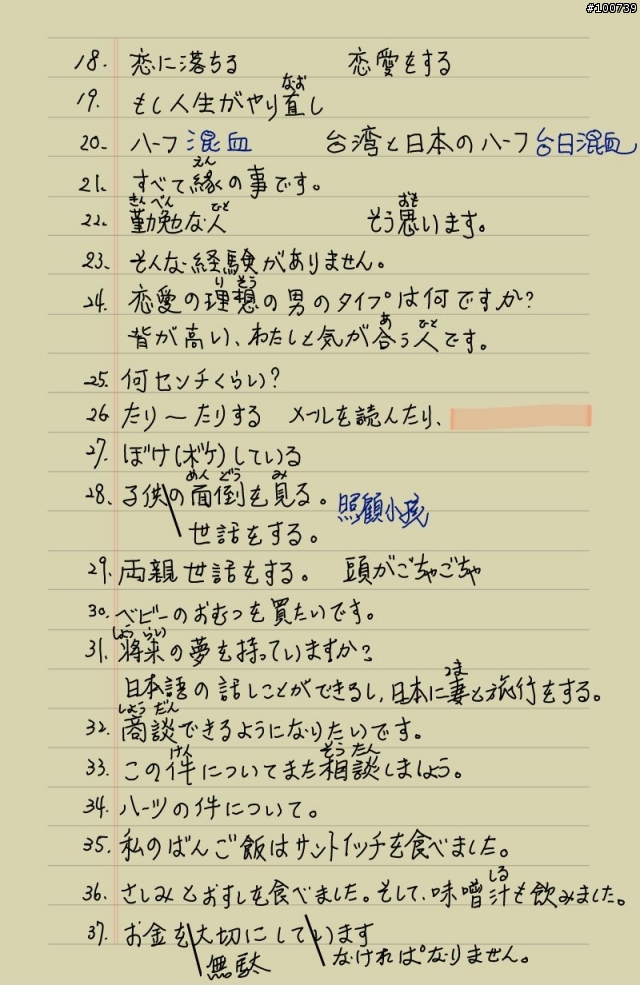 #100739
18. 恋に落ちる 恋愛をする
なお
19. もし人生がやり直し
20. ハーフ 混血 台湾と日本のハーフ 台日混血
えん
21. すべて縁の事です。
きんべん ひと おも
22. 勤勉な人 そう思います。
23. そんな経験がありません。
り そう
24. 恋愛の理想の男のタイプは何ですか?
あ ひと
背が高い、わたしと気が合う人です。
25. 何センチくらい?
26 たり〜たりする メールを読んたり、
27. ぼけ(ボケ)している
めん どう み
28. 子供の面倒を見る。 照顧小孩
世話をする。
29. 両親世話をする。 頭がごちゃごちゃ
30. ベビーのおむつを買たいです。
しょう らい
31. 将来の夢を持っていますか?
つま
日本語の話しことができるし,日本に妻と旅行をする。
しょう だん
32. 商談できるようになりたいです。
けん そう たん
33. この件についてまた相談しましょう。
34. ハーツの件について。
35. 私のばんご飯はサントイッチを食べました。
しる
36. さしみとおすしを食べました。そして、味噌汁も飲みました。
37. お金を大切にしています
無駄 なければなりません。